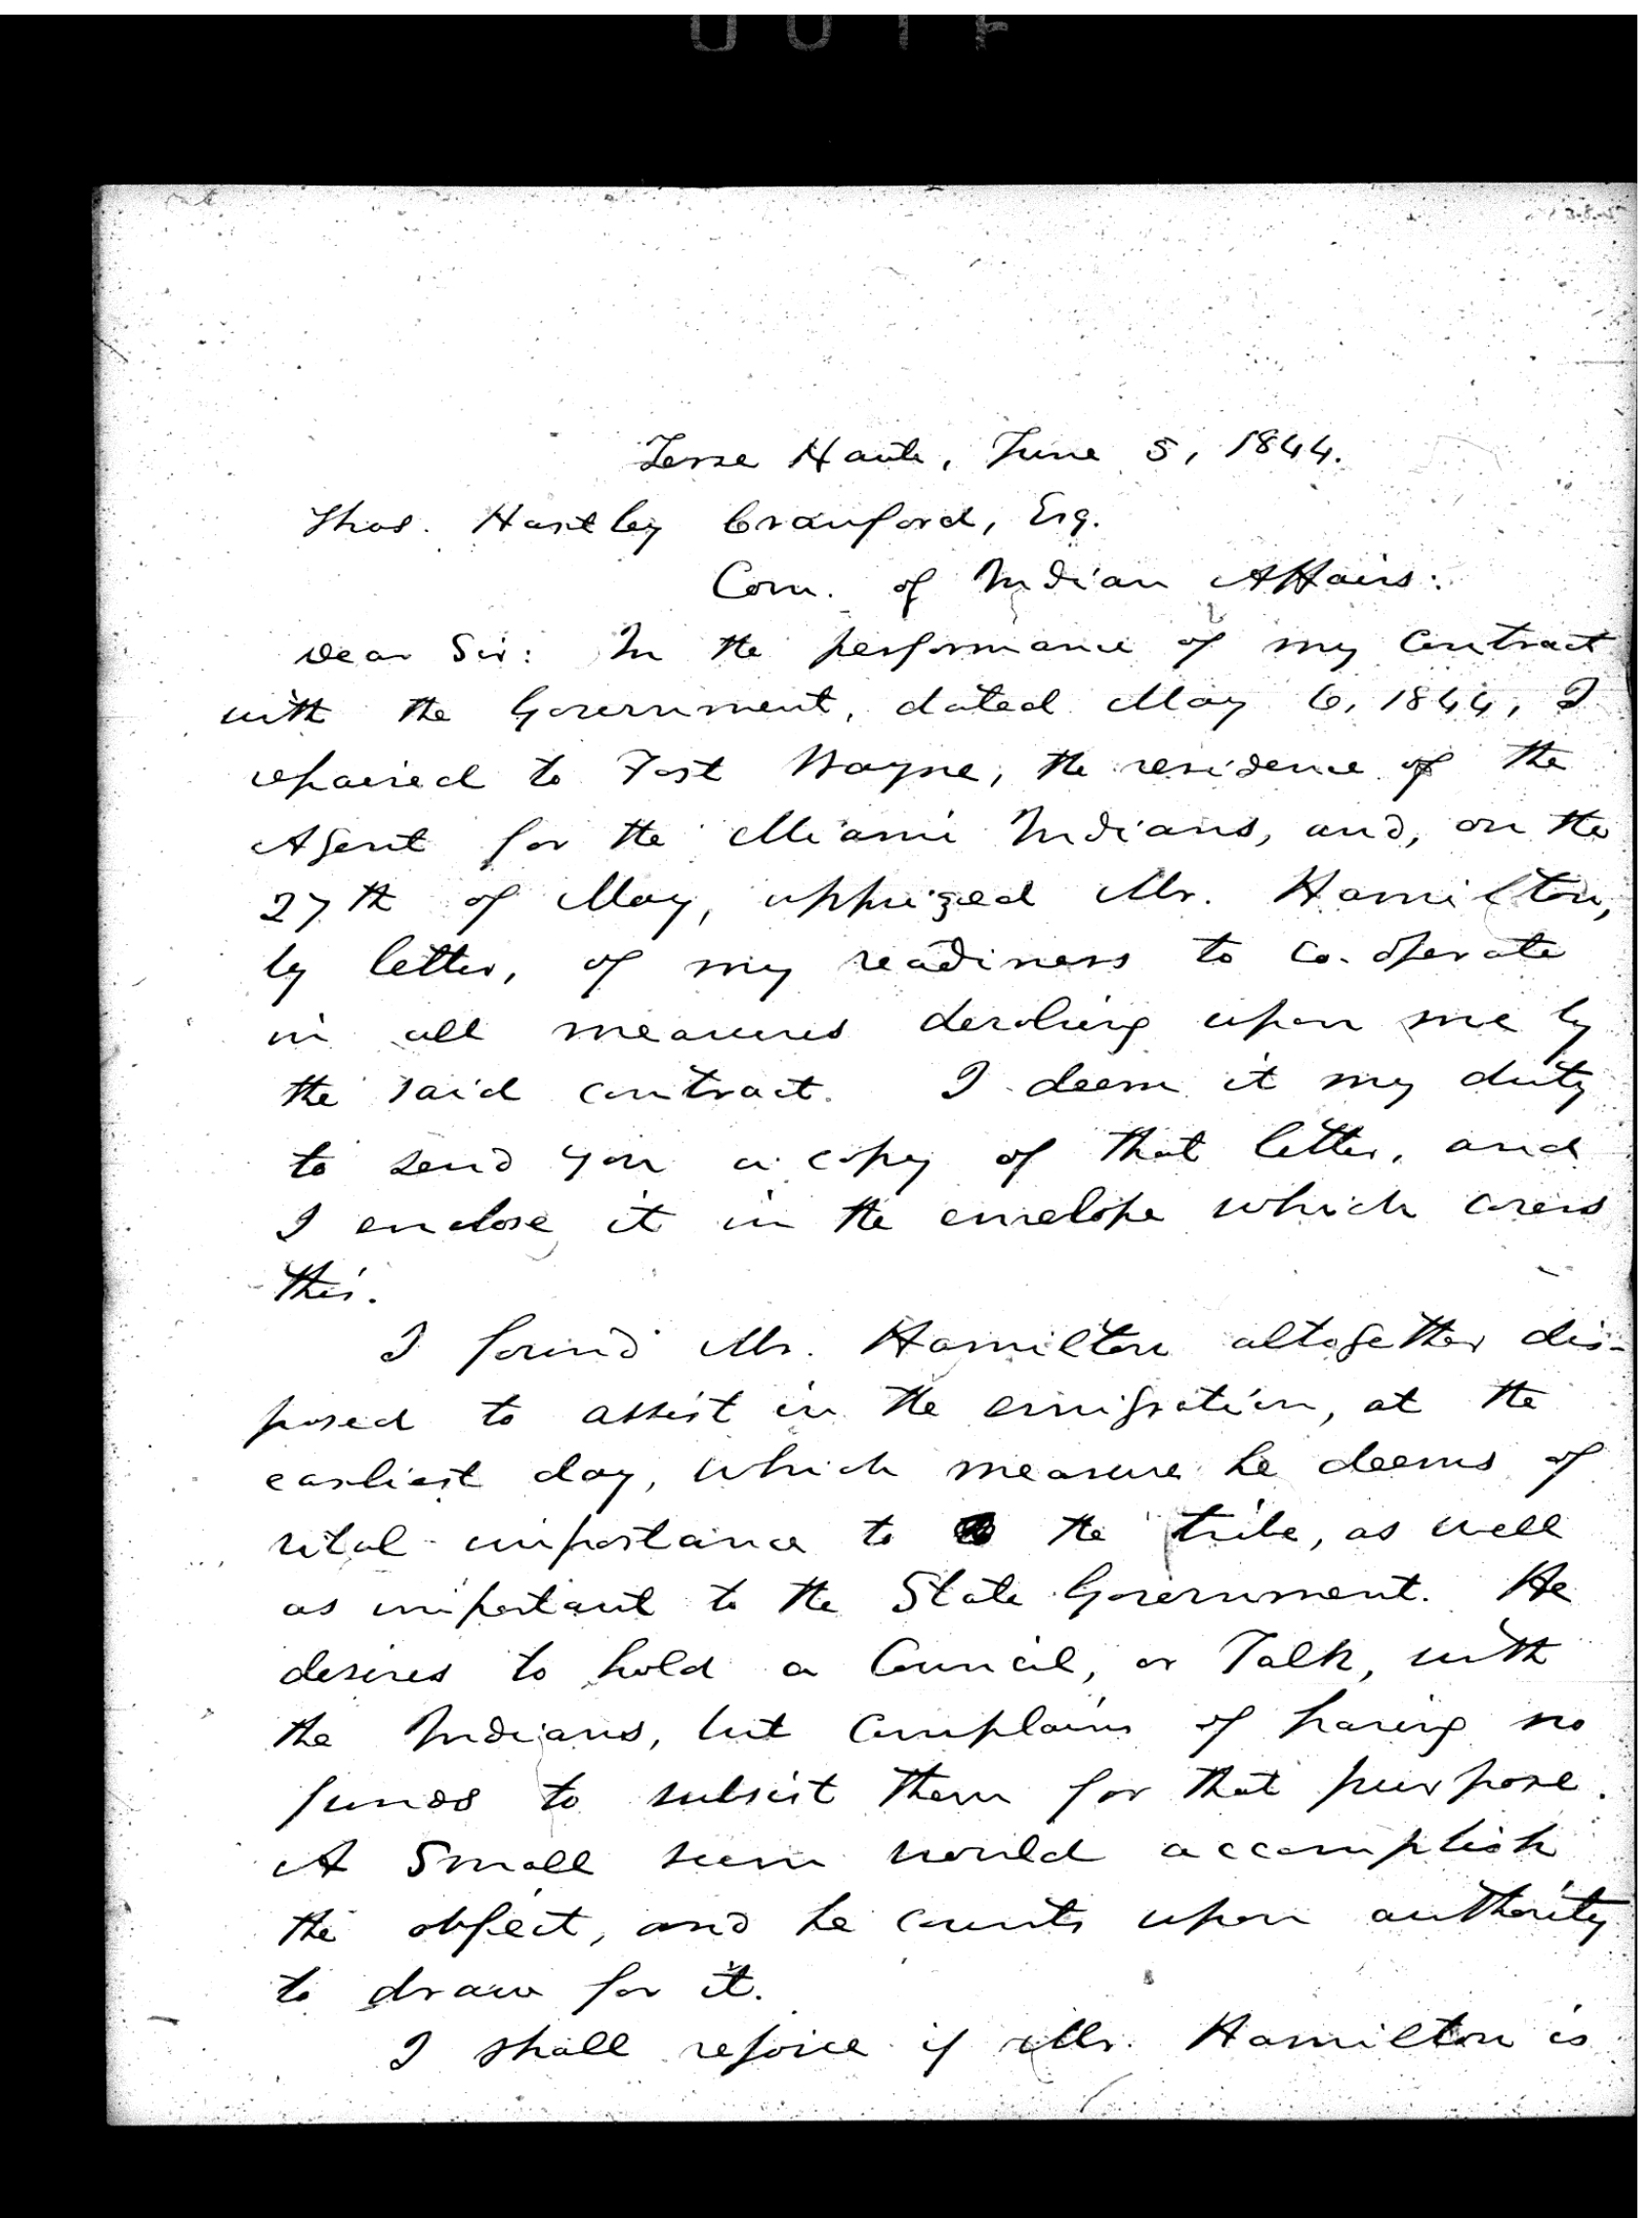 Terre Haute, June 5, 1844.
Thos. Hartley Crawford, Esq.
Com. of Indian Affairs:
Dear Sir: In the performance of my contract
with the Government, dated May 6, 1844, I
repaired to Fort Wayne, the residence of the
Agent for the Miami Indians, and, on the
27th of May, apprized Mr. Hamilton,
by letter, of my readiness to co-operate
in all measures devolving upon me by
the said contract. I deem it my duty
to send you a copy of that letter, and
I enclose it in the envelope which covers
this.
I found Mr. Hamilton altogether dis-
posed to assist in the emigration, at the
earliest day, which measure he deems of
vital importance to the tribe, as well
as important to the State Government. He
desires to hold a Council, or Talk, with
the Indians, but complains of having no
funds to subsist them for that purpose.
A small sum would accomplish
the object, and he counts upon authority
to draw for it.
I shall rejoice if Mr. Hamilton is